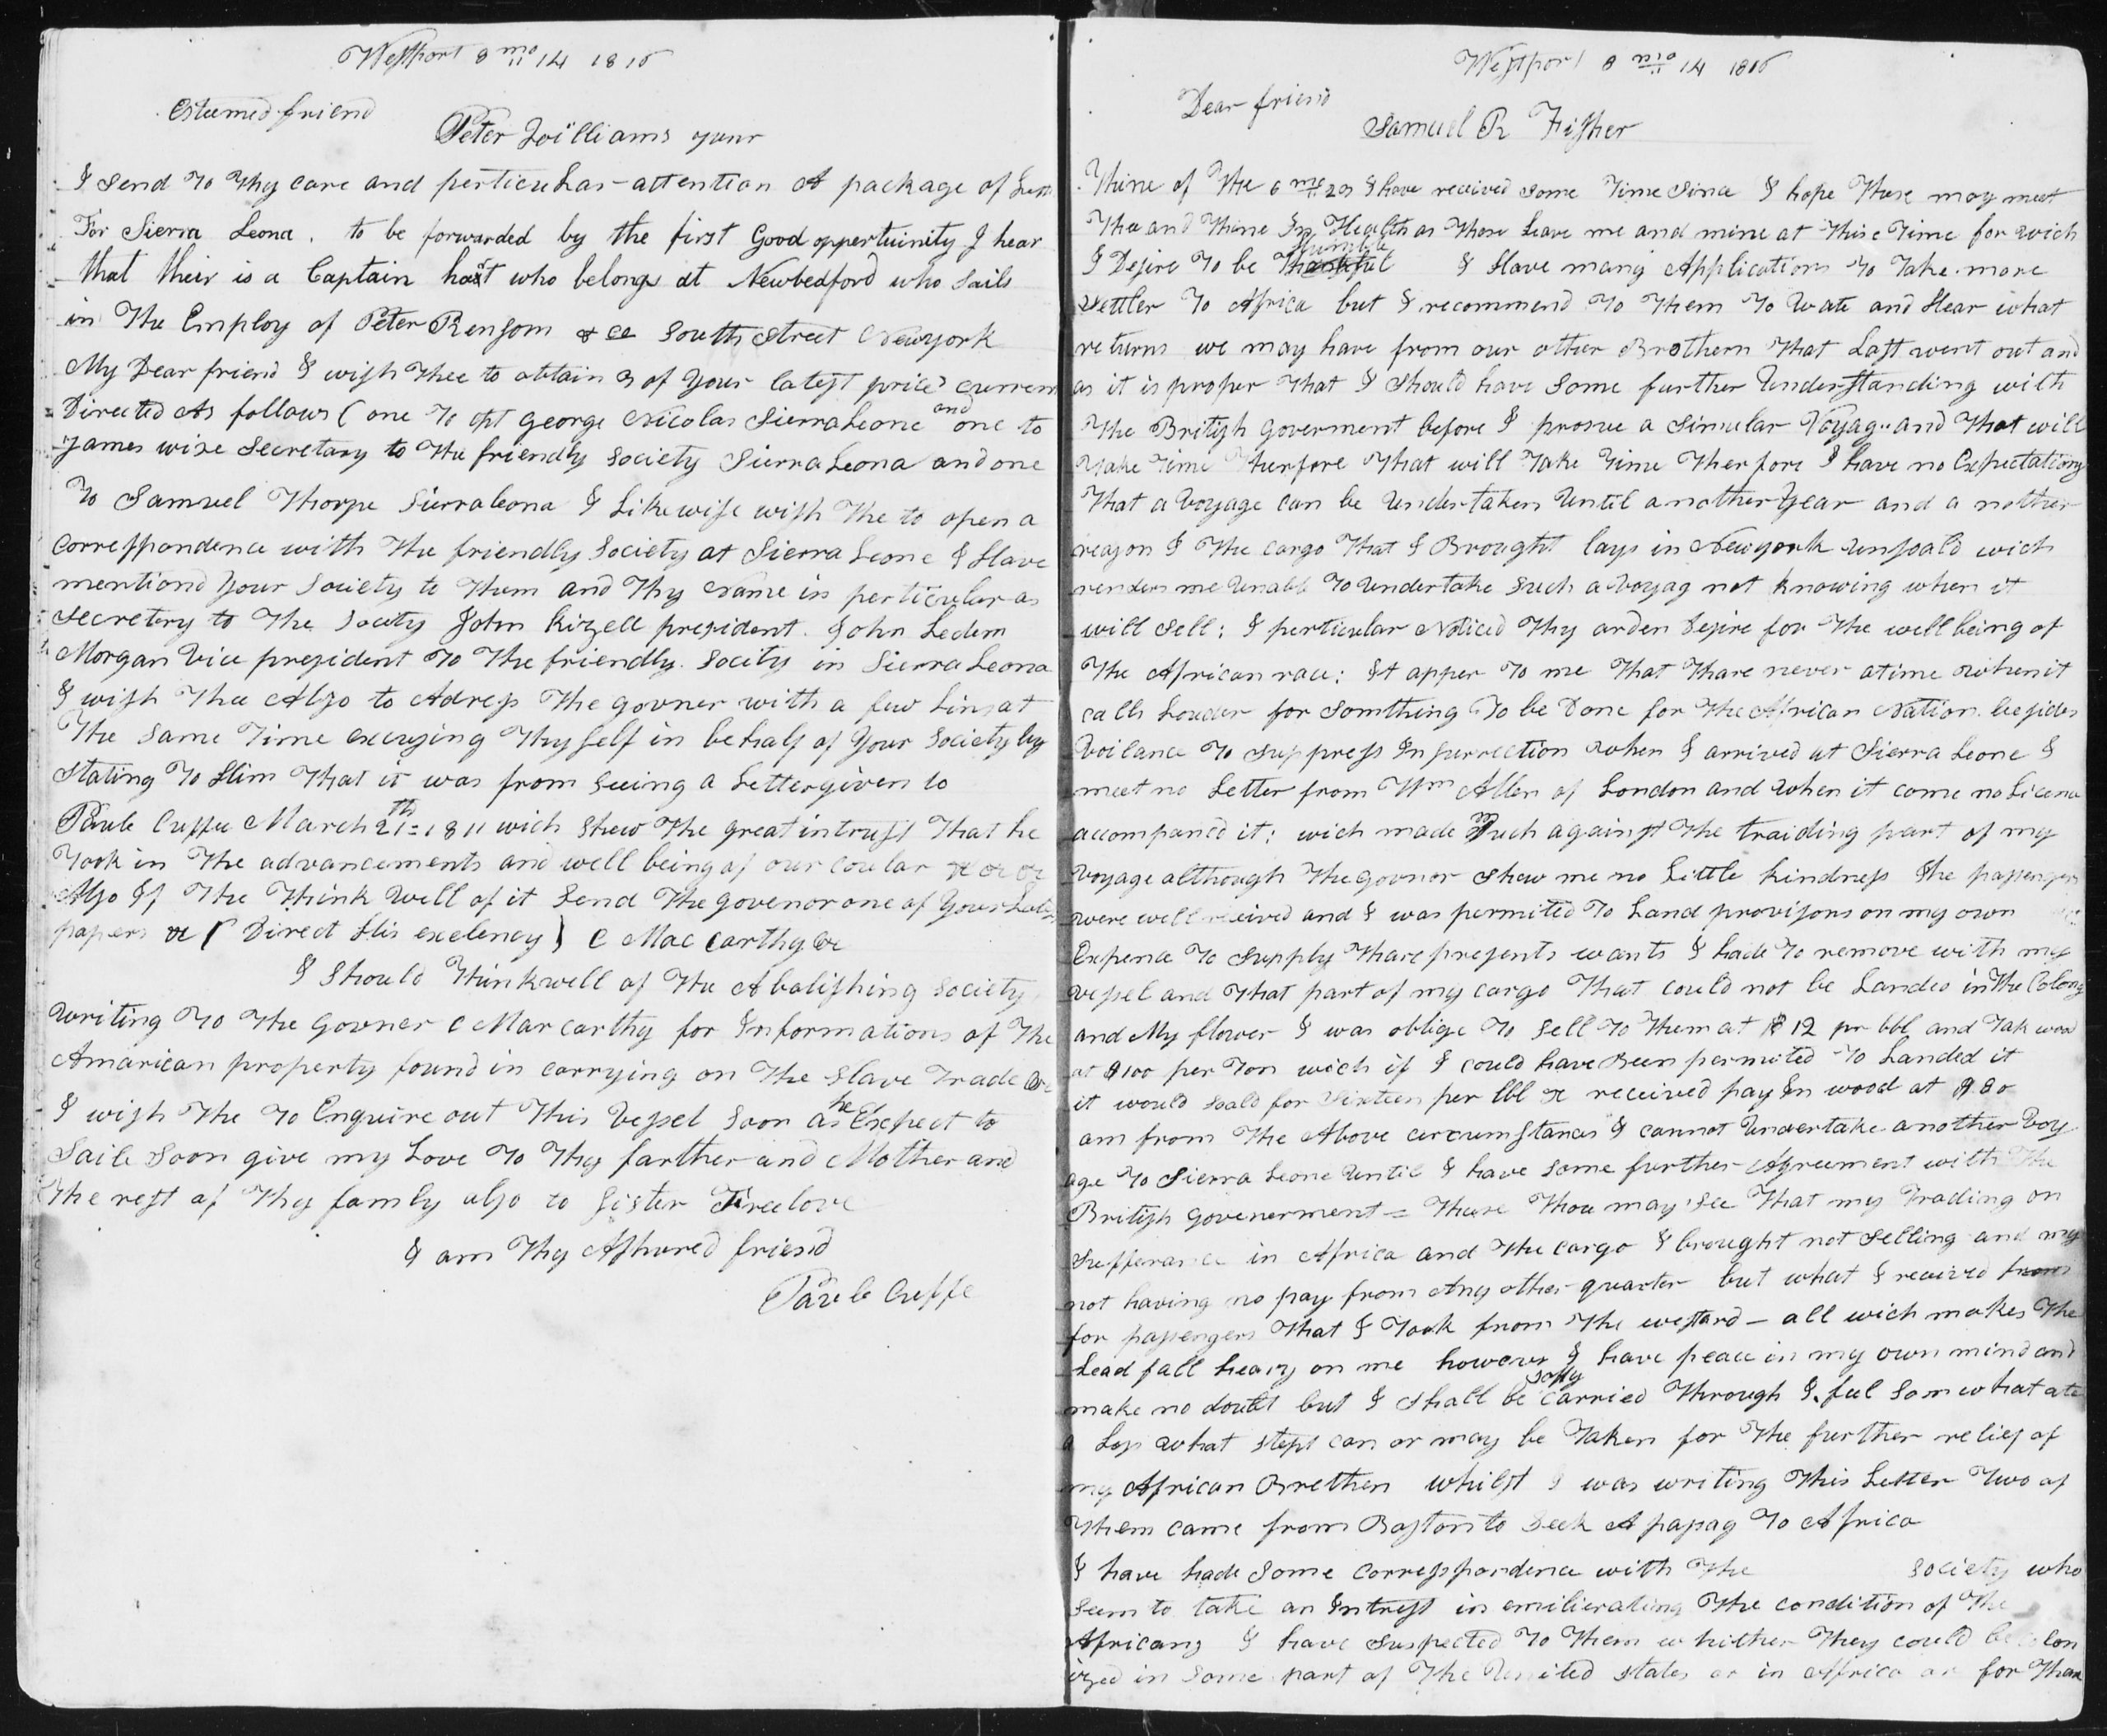 Westport 8 mo 14 1816
Esteemed friend
Peter Williams your
I Send To Thy care and perticuhar attention A package of Lett
For Sierra Leona. to be forwarded by the first Good oppertuinity I hear
that their is a Captain who belongs at Newbedford who Sails
in The Employ of Peter Rensom & Co South Street Newyork
My Dear friend I wish thee to obtain 3 of Your latest prices curren
Directed As follows (one To Cpt George Nicolas Sierra Leone and one to
James wise Secretary to the friendly Society Sierra Leona and one
To Samuel Thorpe Sierraleona I Likewise wish the to open a
Correspondence with the friendly Society at Sierra Leone I Have
mentiond Your Society to them and Thy Name in perticular as
Secretery to The Socity John Kizell president. John Ledem
Morgan Vice president To The friendly Socity in Sierra Leona
I wish Thee Also to Adress The govner with a few Lins at
The Same Time excusing Thyself in behalf of Your Society by
Stating To Him That it was from Seeing a Letter given to
Paule Cuffee March 21th = 1811 wich Shew The great intrust That he
Took in The advancements and well being of our coular &c &c &c
Also If The Think Well of it Send The govenor one of Your
papers &c ( Direct His exelency ) C Mac Carthy &c
I Should Think well of the Abalishing Society
Writing To The Govner C Mar carthy for Informations of The
Amarican property found in carrying on The Slave Trade &c
I wish The To Enquire out This Vessel Soon as he Expect to
Saile Soon give my Love To Thy farther and Mother and
The rest of Thy family also to Sister Freelove
I am Thy Ashured friend
Paule Cuffe
Westport 8 mo 14 1816
Dear friend
Samuel R Fisher
Thine of The 6 mo 20 I have received Some Time Since I hope These may meet
Thee and Thine In Health as Those Leave me and mine at This Time for wich
I Desire To be Humble I Have many Applications To Take more
Settler To Africa but I recommend To Them To Wate and Hear what
returns we may have from our other Brothern That Last went out and
as it is proper That I Should have Some further Understanding with
The British Goverment before I prosue a Simular Voyage and That will
Take Time Therfore That will Take Time Therfore I have no Expectations
That a Voyage can be Undertaken Until another Year and a nother
reason I The cargo That I Brought lays in Newyork unsoald wich
renders me Unabl To Undertake Such a Voyag not knowing when it
will Sell: I perticular Noticed Thy arden Desire for The well being of
The African race: It apper To me That Thare never a time when it
calls Louder for Somthing To be Done for The African Nation. besides
Voilance To Suppress Insurrection when I arrived at Sierra Leone I
meet no Letter from Wm Allen of London and when it come no Licence
accompaned it: wich made Much against The traiding part of my
Voyage although The govnor Shew me no Little kindness The passengers
were well received and I was permited To Land provisons on my own
Expence To Supply Thare presents wants I hade To remove with my
vessel and That part of my cargo That could not be Landed in The Colony
and My flower I was oblige To Sell To Them at $ 12 pr bbl and Tak wood
at $100 per Ton wich if I could have Been permited To Landed it
it would Soald for Sixteen per bbl & received pay In wood at $80
am from The Above circumstances I cannot Undertake another Voy
age To Sierra Leone Until I have Some further Agreement with The
British Govenerment = These Thou may See That my Trading on
Sufferance in Africa and The cargo I brought not Selling and my
not having no pay from Any other quarter but what I received from
for passengers That I Took from The westard — all wich makes The
Lead fall heavy on me however I have peace in my own mind and
make no doubt but I Shall be Safly carried Through I feel Somwhat ate
a Loss what Steps can or may be Taken for The further relief of
my African Brethen whilst I was writing This Letter Two of
Them came from Boston to Seek A passag To Africa
I have hade Some Correspondence with The Society who
Seem to take an Intrest in emilierating The condition of The
Africans I have Suspected To Them whither They could be colon
ized in Some part of The United States or in Africa or for Thare